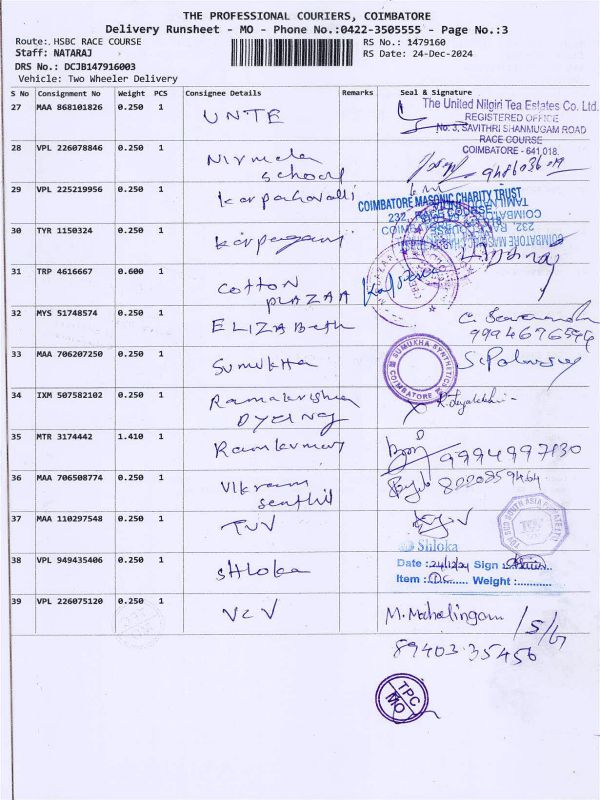 THE PROFESSIONAL COURIERS, COIMBATORE
Delivery Runsheet - MO - Phone No.:0422-3505555 - Page No.:3
Route: HSBC RACE COURSE
Staff: NATARAJ
DRS No.: DCJB147916003
Vehicle: Two Wheeler Delivery
RS No.: 1479160
RS Date: 24-Dec-2024
S No Consignment No Weight PCS Consignee Details Remarks Seal & Signature
27 MAA 868101826 0.250 1 UNTE
The United Nilgiri Tea Estates Co. Ltd.
REGISTERED OFFICE
No. 3, SAVITHRI SHANMUGAM ROAD
RACE COURSE
COIMBATORE - 641 018.
28 VPL 226078846 0.250 1 Nirmala school
29 VPL 225219956 0.250 1 karpahavalli
COIMBATORE MASONIC CHARITY TRUST
232, RACE COURSE
30 TYR 1150324 0.250 1 karpagam
31 TRP 4616667 0.600 1 COTTON PLAZAA
32 MYS 51748574 0.250 1 ELIZABeth
33 MAA 706207250 0.250 1 Sumukha
SUMUKHA SYNTHETICS
COIMBATORE
34 IXM 507582102 0.250 1 Ramakrishna
35 MTR 3174442 1.410 1 Ramkumar
9994997130
36 MAA 706508774 0.250 1 Vikram senthil
8220859464
37 MAA 110297548 0.250 1 TUV
38 VPL 949435406 0.250 1 SHloka
Shloka
Date :24/12/24 Sign :
Item : Weight :
39 VPL 226075120 0.250 1 VCV
M. Mahalingam
89403 35456
TPC
MO